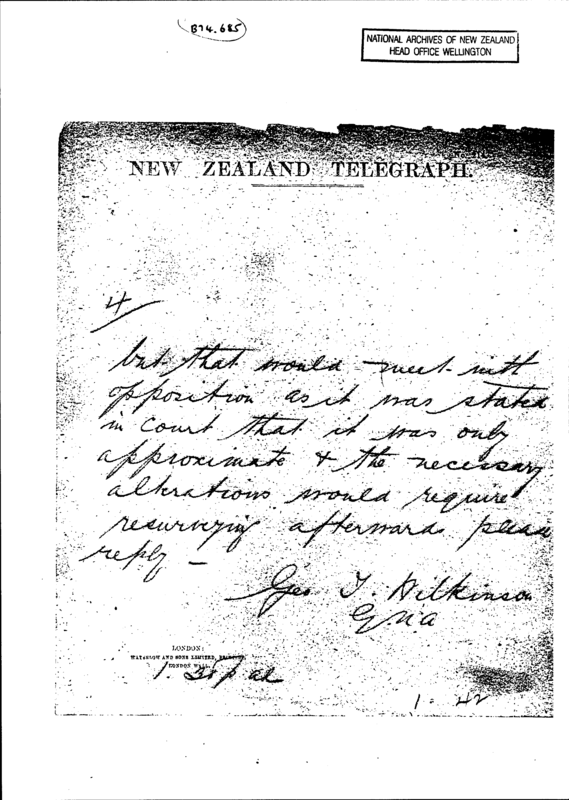 B74.685
NATIONAL ARCHIVES OF NEW ZEALAND
HEAD OFFICE WELLINGTON
NEW ZEALAND TELEGRAPH.
4/
but that would meet with
opposition as it was stated
in Court that it was only
approximate & the necessary
alterations would require
resurveying afterwards please
reply —
Geo. T. Wilkinson
LONDON:
WATERLOW AND SONS LIMITED,
LONDON WALL.